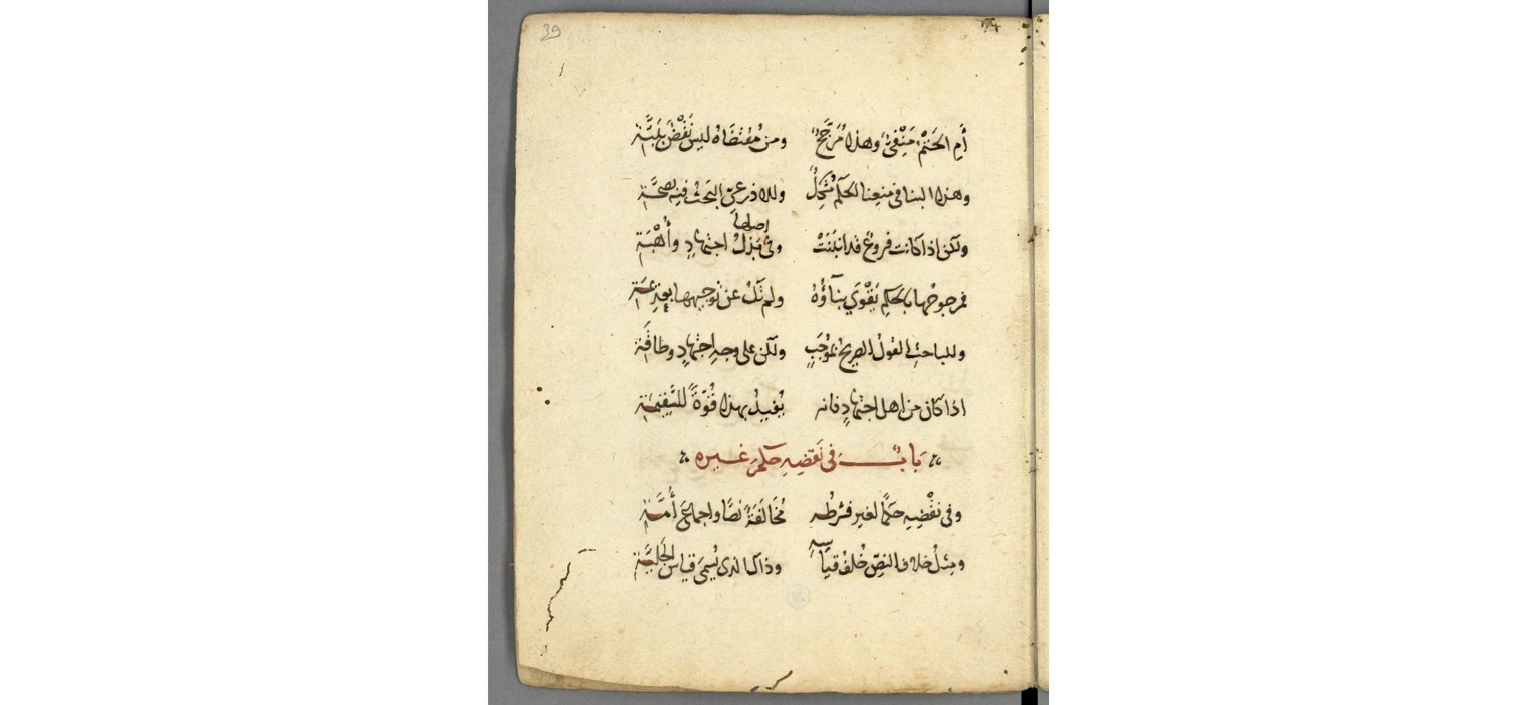 39
أَمِ الحَتْمُ مَنْفِيٌ وهذا مُرَجَّحٌ ومن مُقتضَاهُ ليس نَقْضَ بَتَّة
وهذا البنا في منعنا الحكم مُشْكِلٌ وللاذرعيّ البَحْثُ فيه بصحَّة
ولكن اذا كانت فروعٌ قد انبَنَتْ وفي نَزْلُ اصلها اجتهادٍ وأُهْبَة
فمرجوحُها بالحكمِ يَقْوَى بِنَآؤُهُ ولم نَكُ عن توجيهها
وللباحث القولُ الصريحُ بموُجَبٍ ولكن على وجهِ اجتهادٍ وطاقَة
اذا كان من اهل اجتهادٍ فانه يُفيدُ بهذا قُوّةً للتَّتِمَّة
بابٌ في نَقضِهِ حكمَ غيره
وفي نقْضِهِ حكمًا لغيرٍ فشرطُه مُخَالَفَةٌ نصًّا واجماعَ أُمَّة
ومِثْلُ خلاف النصِّ خُلفُ قياسِهِ وذاك الذي يُسمَى قياسَ الجَليَّة